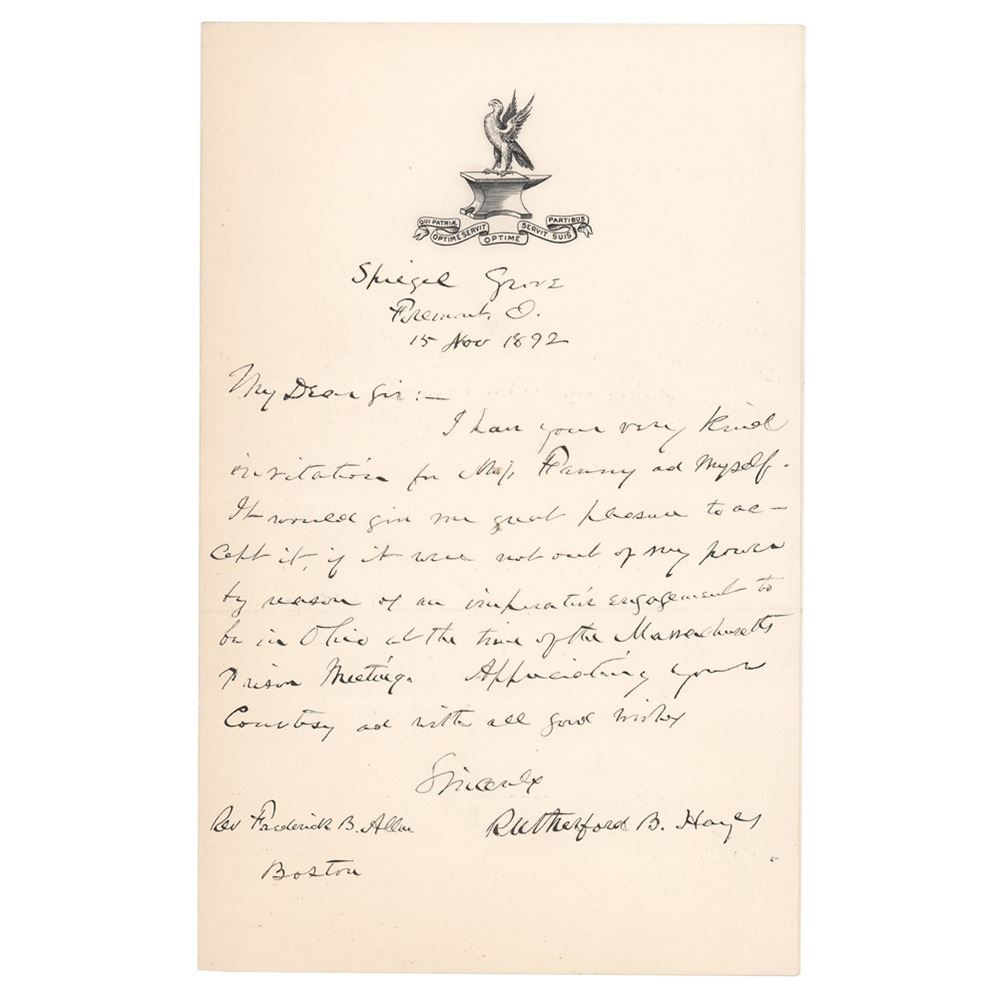 QUI PATRIÆ OPTIME SERVIT OPTIME SERVIT SUIS PARTIBUS
Spiegel Grove
Fremont, O.
15 Nov 1892
My Dear Sir:—
I have your very kind
invitation for Miss Fanny ad myself.
It would give me great pleasure to ac-
cept it, if it were not out of my power
by reason of an imperative engagement to
be in Ohio at the time of the Massachusetts
Prison Meeting. Appreciating your
Courtesy ad with all good wishes
Sincerely
Rev Frederick B. Allen Rutherford B. Hayes
Boston